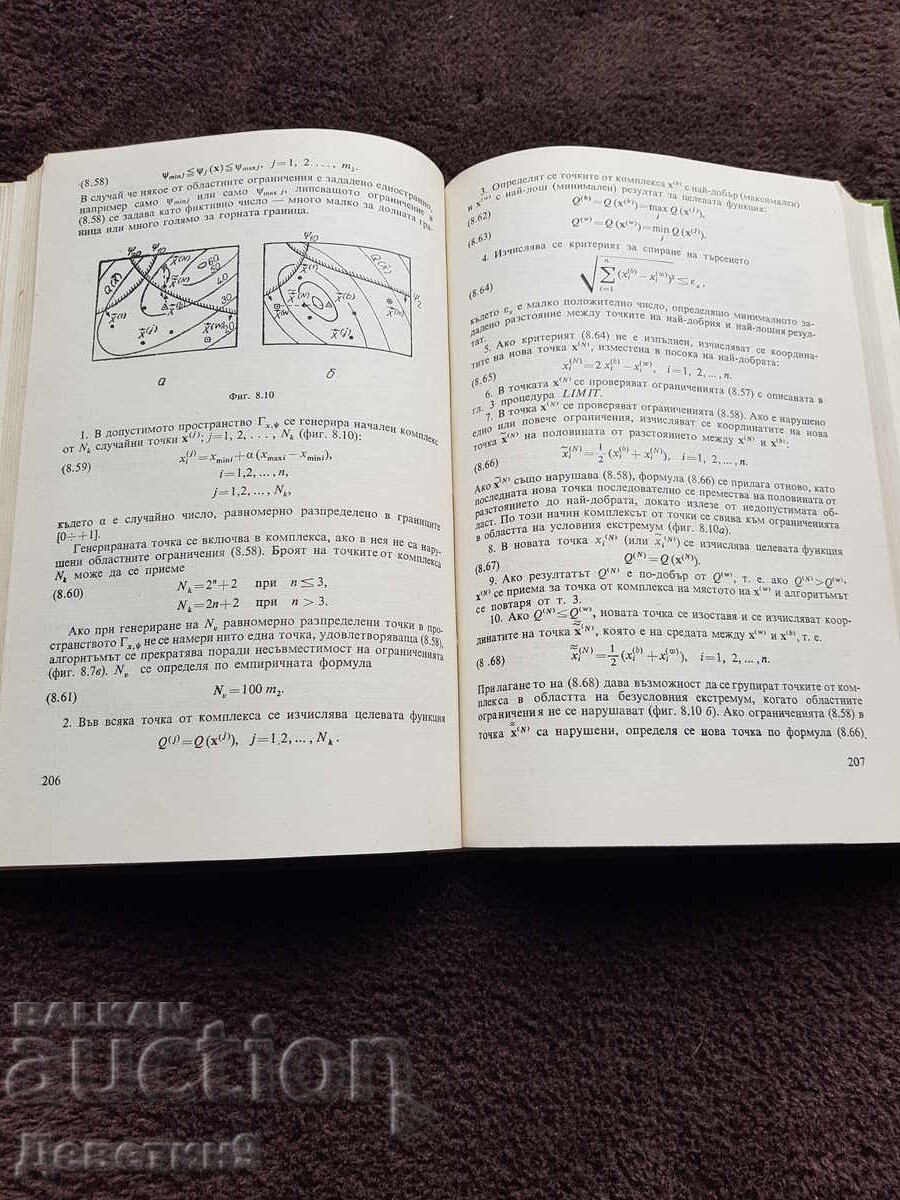 (8.58) ψmin j ≦ ψj (x) ≦ ψmax j, j=1, 2 ..., m2.
В случай че някое от областните ограничения е зададено едностранно,
например само ψmin j или само ψmax j, липсващото ограничение в
(8.58) се задава като фиктивно число — много малко за долната гра-
ница или много голямо за горната граница.
а
б
Фиг. 8.10
1. В допустимото пространство Γx,ψ се генерира начален комплекс
от Nk случайни точки x(j); j=1, 2, . . . , Nk (фиг. 8.10):
(8.59) xi(j)=xmini+α (xmaxi − xmini),
i=1,2, ..., n,
j=1,2,..., Nk,
където α е случайно число, равномерно разпределено в границите
[0÷+1].
Генерираната точка се включва в комплекса, ако в нея не са нару-
шени областните ограничения (8.58). Броят на точките от комплекса
Nk може да се приеме
(8.60) Nk=2ⁿ+2 при n≤3,
Nk=2n+2 при n>3.
Ако при генериране на Nv равномерно разпределени точки в про-
странството Γx,ψ не се намери нито една точка, удовлетворяваща (8.58),
алгоритъмът се прекратява поради несъвместимост на ограниченията
(фиг. 8.7в). Nv се определя по емпиричната формула
(8.61) Nv=100 m2.
2. Във всяка точка от комплекса се изчислява целевата функция
Q(j)=Q(x(j)), j=1,2,..., Nk.
206
3. Определят се точките от комплекса x(b) с най-добър (максимален)
и x(w) с най-лош (минимален) резултат за целевата функция:
(8.62) Q(b)=Q (x(b))=max Q (x(j)),
j
(8.63) Q(w)=Q (x(w))=min Q (x(j)).
j
4. Изчислява се критерият за спиране на търсенето
(8.64) √ Σ i=1 n (xi(b) − xi(w))² ≤ εx,
където εx е малко положително число, определящо минималното за-
дадено разстояние между точките на най-добрия и най-лошия резул-
тат.
5. Ако критерият (8.64) не е изпълнен, изчисляват се координа-
тите на нова точка x(N), изместена в посока на най-добрата:
(8.65) xi(N)=2 xi(b)−xi(w), i=1, 2, ..., n.
6. В точката x(N) се проверяват ограниченията (8.57) с описаната в
гл. 3 процедура LIMIT.
7. В точка x(N) се проверяват ограниченията (8.58). Ако е нарушено
едно или повече ограничения, изчисляват се координатите на нова
точка x̃(N) на половината от разстоянието между x(N) и x(b):
(8.66) x̃i(N)=1/2 (xi(b)+xi(N)), i=1, 2, ..., n.
Ако x̃(N) също нарушава (8.58), формула (8.66) се прилага отново, като
последната нова точка последователно се премества на половината от
разстоянието до най-добрата, докато излезе от недопустимата об-
ласт. По този начин комплексът от точки се свива към ограниченията
в областта на условния екстремум (фиг. 8.10а).
8. В новата точка xi(N) (или x̃i(N)) се изчислява целевата функция
(8.67) Q(N)=Q (x(N)).
9. Ако резултатът Q(N) е по-добър от Q(w), т. е. ако Q(N)>Q(w),
x(N) се приема за точка от комплекса на мястото на x(w) и алгоритъмът
се повтаря от т. 3.
10. Ако Q(N)≤Q(w), новата точка се изоставя и се изчисляват коор-
динатите на точка x̃̃(N), която е на средата между x(w) и x(b), т. е.
(8 .68) x̃̃i(N)=1/2 (xi(b)+xi(w)), i=1, 2, ..., n.
Прилагането на (8.68) дава възможност да се групират точките от ком-
плекса в областта на безусловния екстремум, когато областните
ограничения не се нарушават (фиг. 8.10 б). Ако ограниченията (8.58) в
точка x̃̃(N) са нарушени, определя се нова точка по формула (8.66).
207
BALKAN
auction
Деветпи9